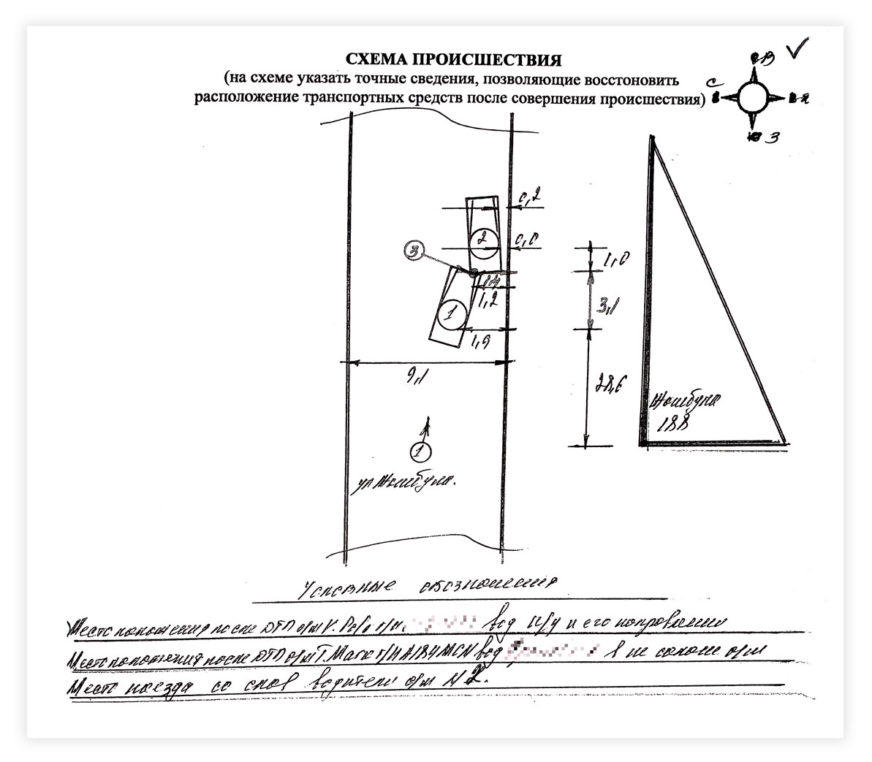 СХЕМА ПРОИСШЕСТВИЯ
(на схеме указать точные сведения, позволяющие восстоновить
расположение транспортных средств после совершения происшествия)
В
С
З
0,2
2
0,0
3
1,0
1,2
3,1
1
1,9
9,1
28,6
188
1
ул
Условные обозначения
Место положения после ДТП а/м V. г/н. вод и его направлении
Место положения после ДТП а/м Т. г/н А184МСN вод в не а/м
Место наезда со слов водителя а/м N2.